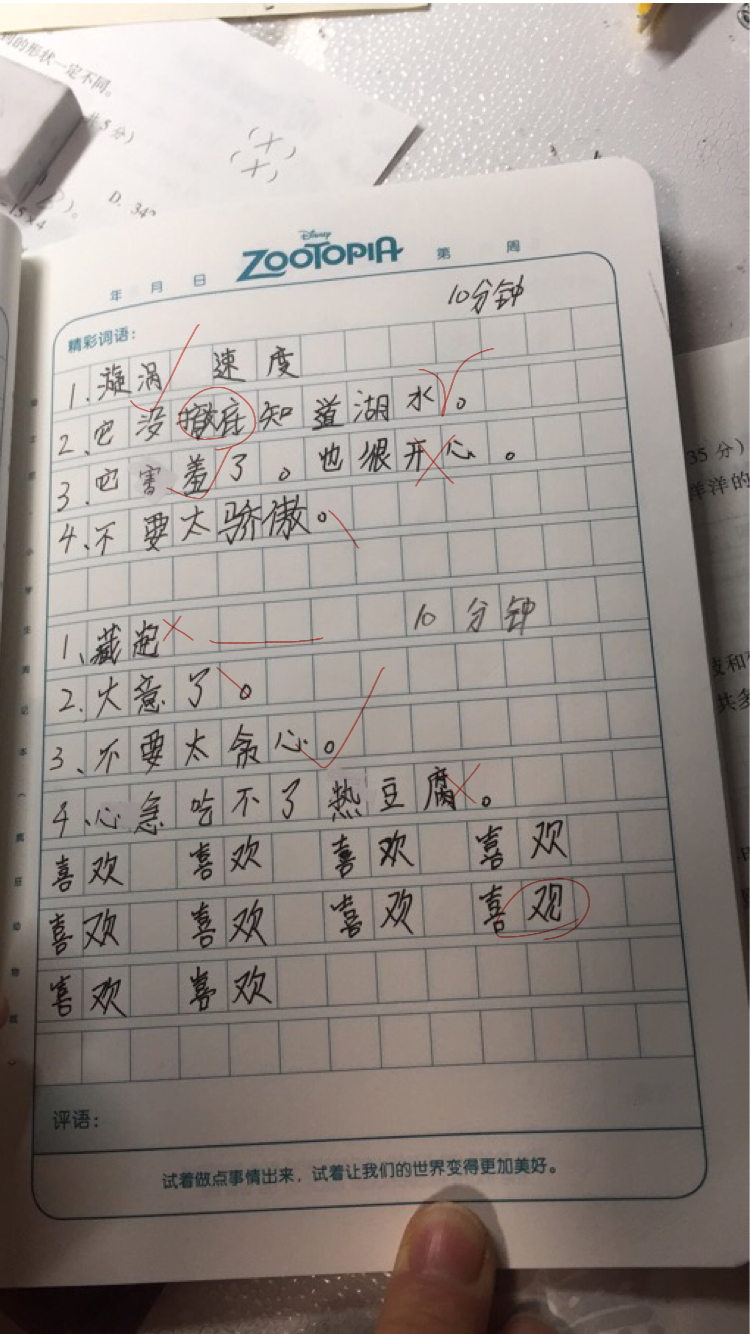 到的形状一定不同。
共5分)
(×)
(×)
D. 34
15×4
Disney
ZOOTOPIA
年 月 日
第 周
10分钟
精彩词语：
1.漩涡 速度
2、它没撤底知道湖水。
3、它害羞了。也很开心。
4、不要太骄傲。
1、藏起 10分钟
2.大意了。
3、不要太贪心。
4、心急吃不了热豆腐。
喜欢 喜欢 喜欢 喜欢
喜欢 喜欢 喜欢 喜观
喜欢 喜欢
评语：
试着做点事情出来，试着让我们的世界变得更加美好。
35分)
洋洋的
共多